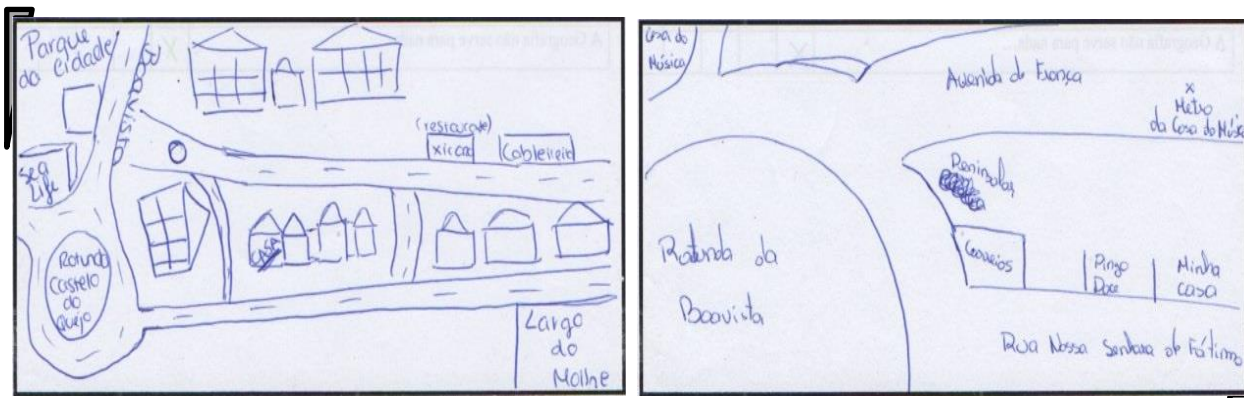 Parque
da Cidade
Boavista
Sea
Life
Rotunda
Castelo
do
Queijo
casa
(restaurante)
xicara
Cableireiro
Largo
do
Molhe
A Geografia não serve para nada...
Casa da
Música
Avenida de França
x
Metro
da Casa da Música
Peninsular
Rotunda da
Boavista
Correios
Pingo
Doce
Minha
casa
Rua Nossa Senhora de Fátima